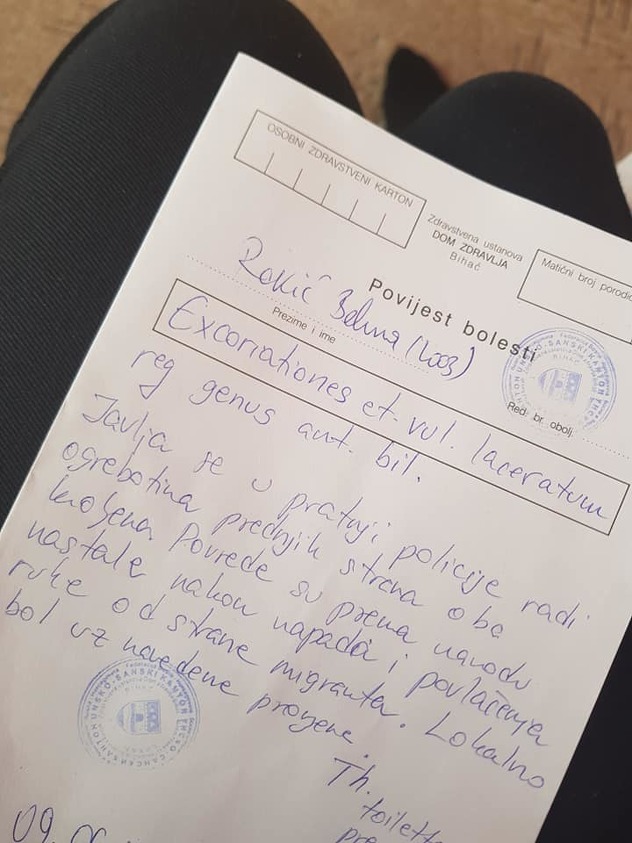 OSOBNI ZDRAVSTVENI KARTON
Zdravstvena ustanova
DOM ZDRAVLJA
Bihać
Matični broj porodic
Povijest bolesti
Rekić
(2003)
Prezime i ime
Red. br. obolj.
Excoriationes et vul. laceratum
reg genus ant. bil.
Javlja se u pratnji policije radi
ogrebotina prednjih strana oba
koljena Povrede su prema navodu
nastale nakon napada i povlačenja
ruke od strane migranta. Lokalno
bol uz navedene promjene.
Th.
toilett
09.